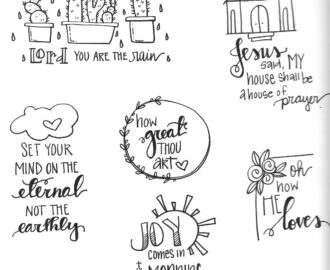 Lord YOU ARE THE rain
Jesus
said, MY
house shall be
a house of
prayer
how
great
THOU
art
SET YOUR
MIND ON THE
eternal
NOT THE
earthly
oh
how
HE
loves
JOY
COMES IN
MORNING